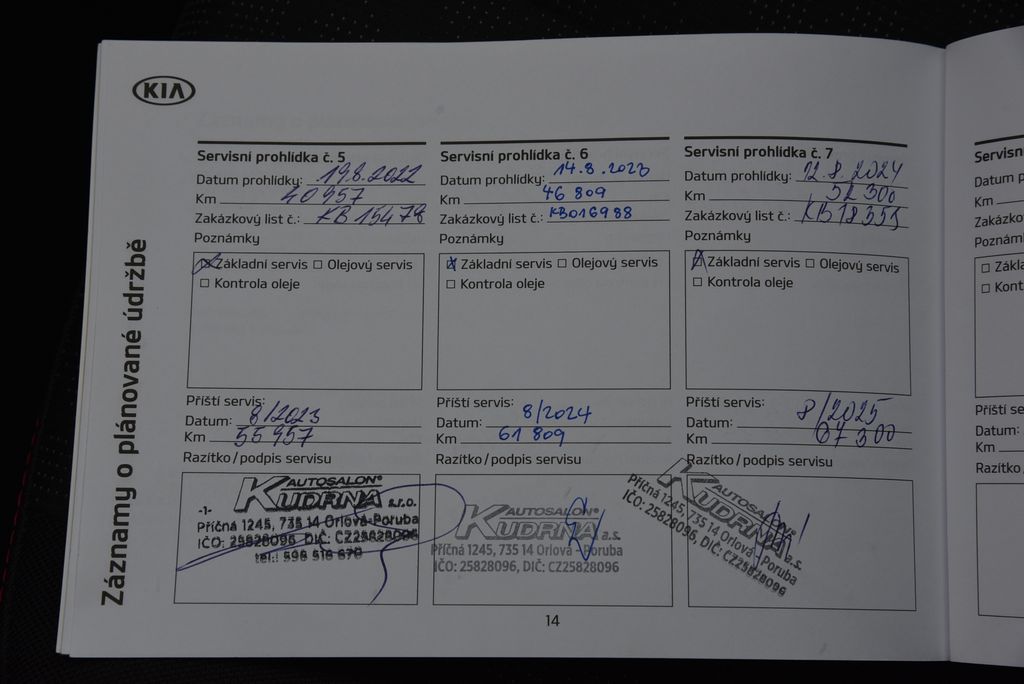 KIA
Záznamy o plánované údržbě
Servisní prohlídka č. 5
Datum prohlídky: 19.8.2022
Km 40 957
Zakázkový list č.: KB 15478
Poznámky
Základní servis Olejový servis
Kontrola oleje
Příští servis:
Datum: 8/2023
Km 55 957
Razítko/podpis servisu
AUTOSALON
KUDRNA s.r.o.
-1-
Příčná 1245, 735 14 Orlová-Poruba
IČO: 25828096, DIČ: CZ25828096
tel.: 596 516 670
Servisní prohlídka č. 6
Datum prohlídky: 14.8.2023
Km 46 809
Zakázkový list č.: KB016988
Poznámky
Základní servis Olejový servis
Kontrola oleje
Příští servis:
Datum: 8/2024
Km 61 809
Razítko/podpis servisu
AUTOSALON
KUDRNA a.s.
Příčná 1245, 735 14 Orlová - Poruba
IČO: 25828096, DIČ: CZ25828096
Servisní prohlídka č. 7
Datum prohlídky: 12.8.2024
Km 52 300
Zakázkový list č.: KB 18355
Poznámky
Základní servis Olejový servis
Kontrola oleje
Příští servis:
Datum: 8/2025
Km 67 300
Razítko/podpis servisu
AUTOSALON
KUDRNA a.s.
Příčná 1245, 735 14 Orlová - Poruba
IČO: 25828096, DIČ: CZ25828096
Servisn
Datum p
Km
Zakázko
Poznám
Zákl
Kont
Příští se
Datum:
Km
Razítko
14